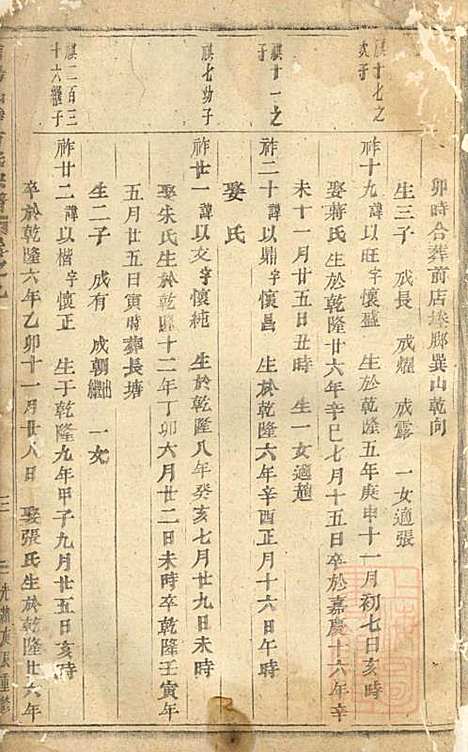 卯時合葬前店塘廊巽山乾向
生三子 成長 成耀 成露 一女適張
祺十七之
次子
祚十九諱以旺字懷盛 生於乾隆五年庚申十一月初七日亥時
娶蔣氏生於乾隆廿六年辛巳七月十五日卒於嘉慶十六年辛
未十一月廿五日丑時 生一女適趙
祺十一之
子
祚二十諱以鼎字懷昌 生於乾隆六年辛酉正月十六日午時
娶 氏
祺七幼子
祚廿一諱以文字懷純 生於乾隆八年癸亥七月廿九日未時
娶朱氏生於乾隆十二年丁卯六月廿二日未時卒乾隆壬寅年
五月廿五日寅時葬長塘
生二子 成有 成朝繼出 一女
祺二百三
十六繼子
祚廿二諱以楷字懷正 生于乾隆九年甲子九月廿五日亥時
卒於乾隆六年乙卯十一月廿八日 娶張氏生於乾隆廿六年